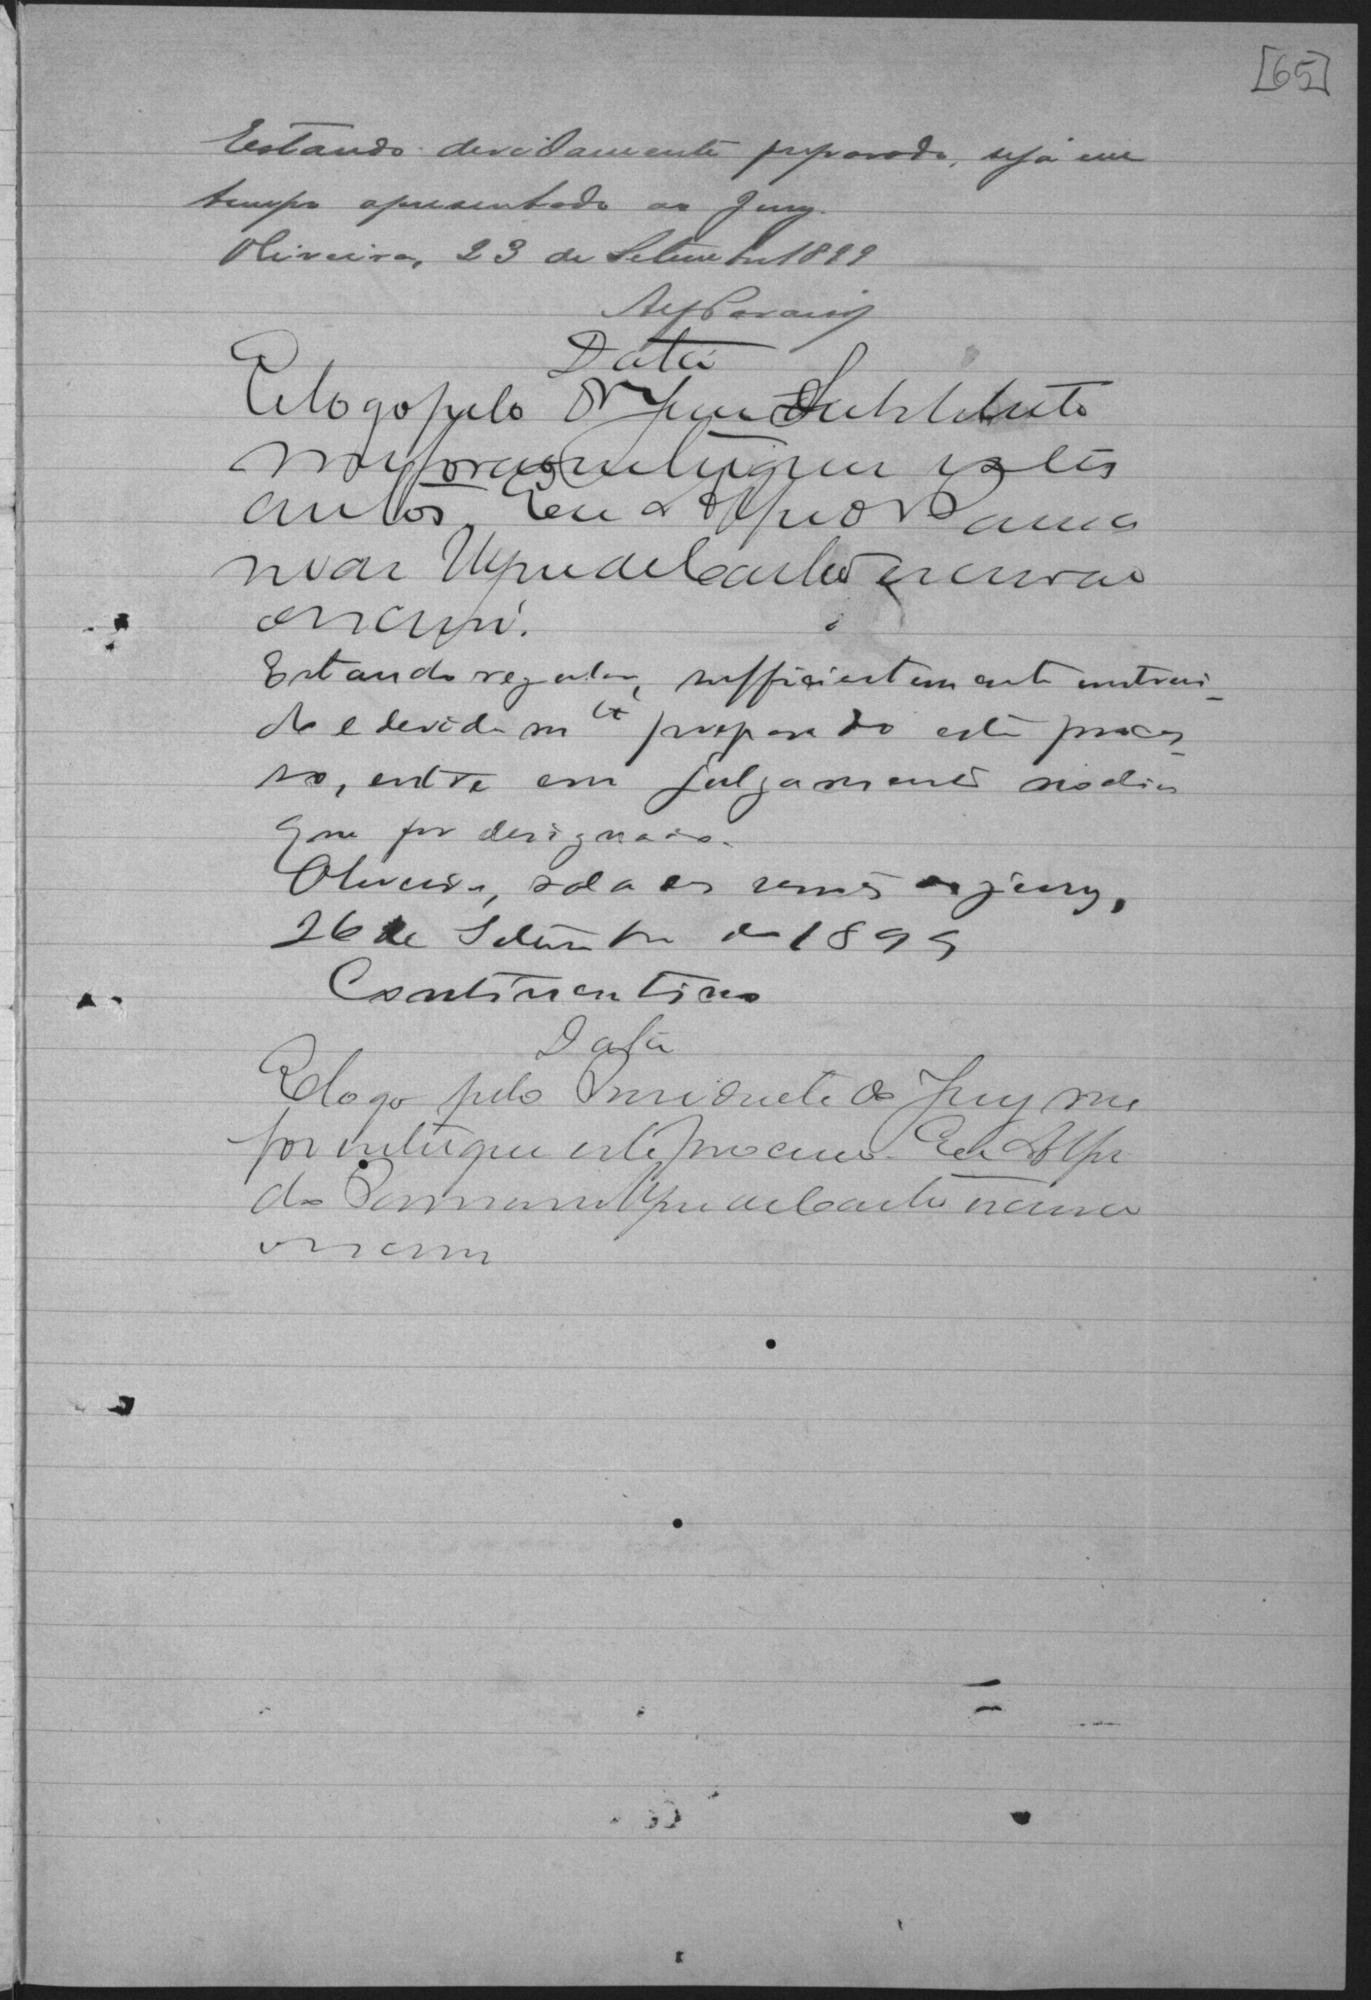 [65]
Estando devidamente preparado, seja em
tempo apresentado ao Jury.
Oliveira, 23 de Setembro 1899
Data
E logo pelo Dr Juiz Substituto
me foram entregues estes
autos. Eu Alfredo
escrevi.
Estando regular, sufficientemente instrui-
do e devidamte preparado este proces-
so, entre em julgamento no dia
que for designado.
Oliveira, sala das sessões do jury,
26 de Setembro de 1899
Continentino
Data
E logo pelo Presidente do Jury me
foi entregue este processo. Eu Alfre
do
escrevi